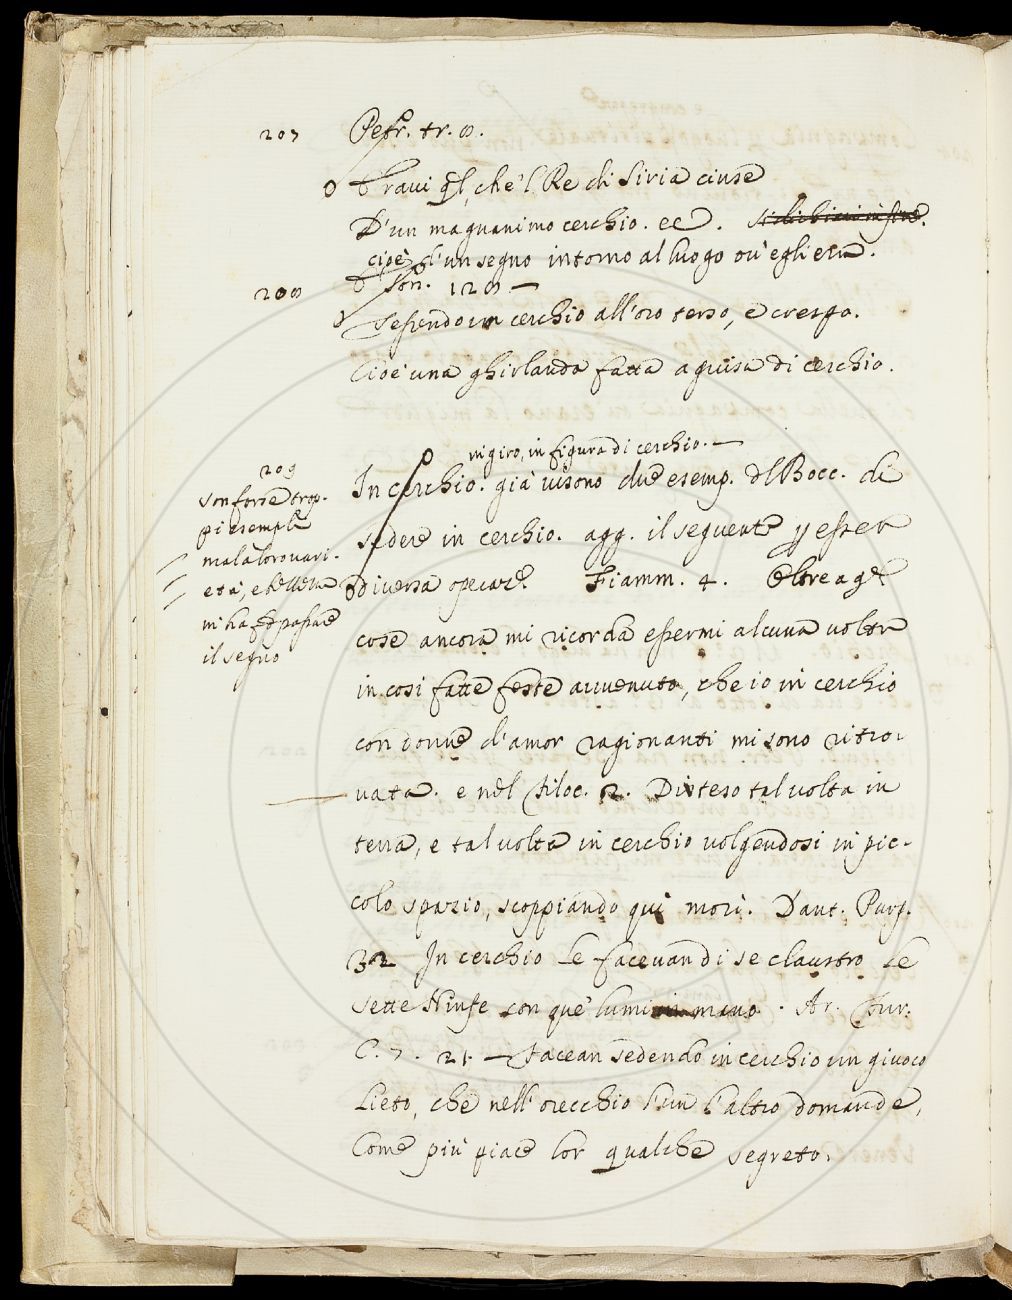 207 Petr. tr. 8.
Eravi ql, che 'l Re di Siria cinse
D'un magnanimo cerchio. ec.
cioè d'un segno intorno al luogo ou' egli era.
208 Son. 128 —
Tessendo un cerchio all'oro terso, e crespo.
Cioè una ghirlanda fatta a guisa di cerchio.
in giro, in figura di cerchio. —
209
In cerchio. già vi sono due esemp. dl Bocc. di
sedere in cerchio. agg. il seguente p esser
diversa operaz.e Fiamm. 4. Oltre a qe
cose ancora mi ricorda essermi alcuna volta
in cosi fatte feste avvenuto, che io in cerchio
con donne d'amor ragionanti mi sono ritro-
vata. e nel Filoc. 2. Disteso tal volta in
terra, e tal volta in cerchio volgendosi in pic-
colo spazio, scoppiando qui morì. Dant. Purg.
32 In cerchio le facevan di se claustro le
sette Ninfe con que' lumi in mano. Ar. Fur.
C. 7. 21 — Facean sedendo in cerchio un giuoco
Lieto, che nell'orecchio l'un l'altro domande,
Come più piace lor qualche segreto.
son forse trop-
pi esempli
ma la loro vari-
età, e bellezza
mi ha fatto passare
il segno